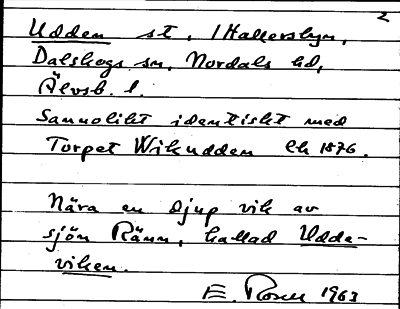 2
Udden st. i Hallersbyn,
Dalskogs sn, Nordals hd,
Älvsb. l.
Sannolikt identiskt med
Torpet Wikudden Ek 1876.
Nära en djup vik av
sjön Ränn, kallad Udde-
viken.
E. Rosell 1963